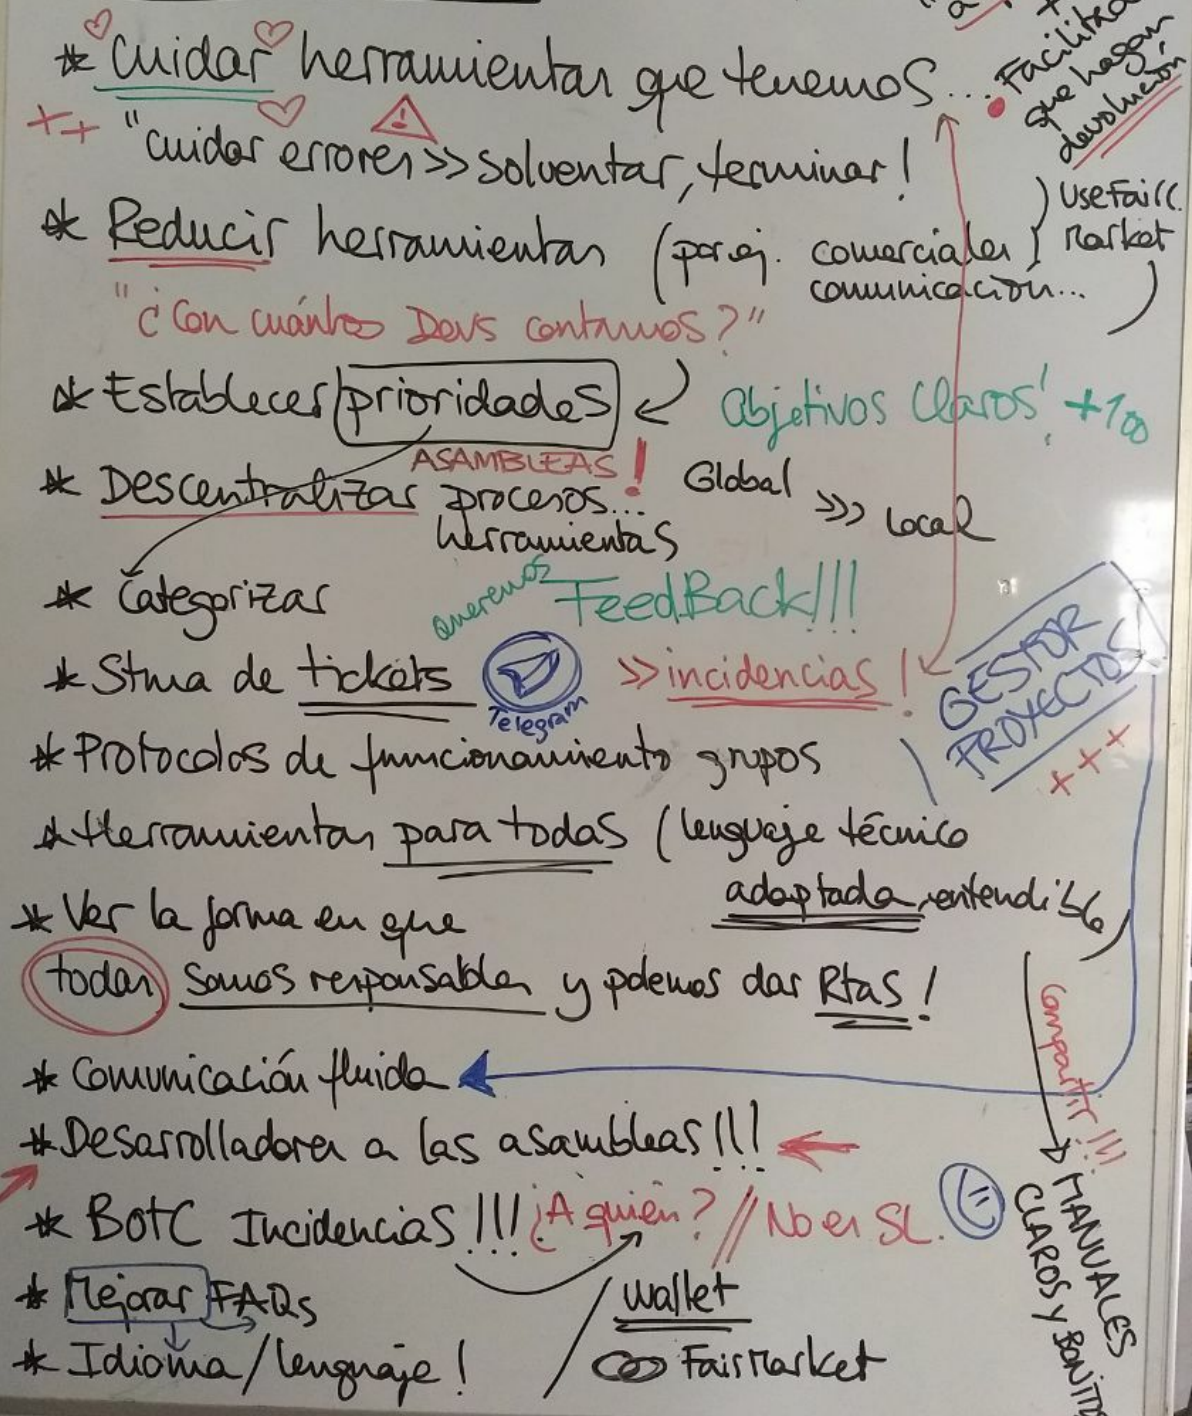 +
• Facilitar
que hagan
devolución
* Cuidar herramientas que tenemos...
++ "cuidar errores >> solventar, terminar!
* Reducir herramientas (por ej. comerciales
comunicación...
) UseFaircMarket
"¿Con cuántos Devs contamos?"
* Establecer prioridades
Objetivos Claros! +100
ASAMBLEAS!
* Descentralizar procesos...
herramientas
Global >>> Local
* Categorizar
Queremos FeedBack!!!
* Stma de tickets
Telegram
>> incidencias!
GESTOR
PROYECTOS
+++
* Protocolos de funcionamiento grupos
* Herramientas para todas (lenguaje técnico
adaptada, entendible)
* Ver la forma en que
todas somos responsables y podemos dar Rtas!
* Comunicación fluida
* Desarrolladores a las asambleas!!!
* BotC Incidencias!!! ¿A quién? // No en SL.
* Mejorar FAQs
* Idioma/lenguaje!
/ wallet
FairMarket
Compartir!!!
MANUALES
CLAROS Y BONITOS